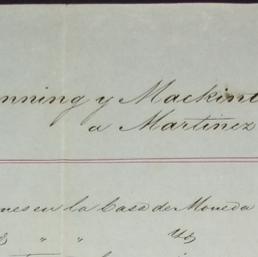 nning y Mackint
a Martinez
nes en la Casa de Moneda
" "